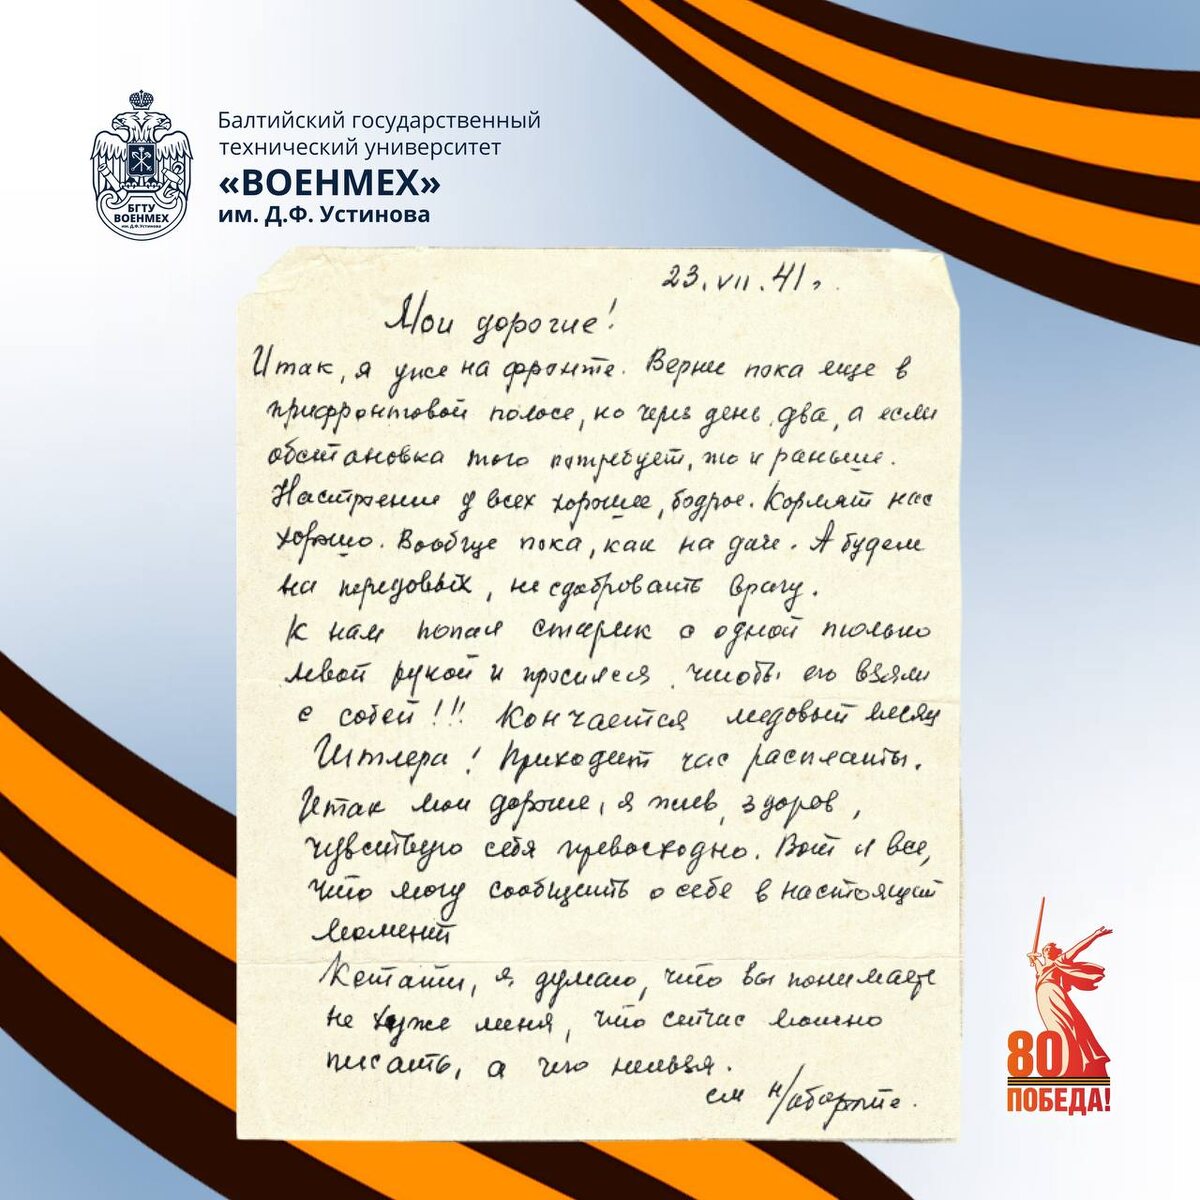 Балтийский государственный
технический университет
«ВОЕНМЕХ»
им. Д.Ф. Устинова
БГТУ
ВОЕНМЕХ
им. Д.Ф. Устинова
23.VII.41 г.
Мои дорогие!
Итак, я уже на фронте. Вернее пока еще в
прифронтовой полосе, но через день, два, а если
обстановка того потребует, то и раньше.
Настроение у всех хорошее, бодрое. Кормят нас
хорошо. Вообще пока, как на даче. А будем
на передовых, не сдобровать врагу.
К нам попал старик с одной только
левой рукой и просился, чтобы его взяли
с собой!!! Кончается медовый месяц
Гитлера! Приходит час расплаты.
Итак мои дорогие, я жив, здоров,
чувствую себя превосходно. Вот и все,
что могу сообщить о себе в настоящий
момент
Кстати, я думаю, что вы понимаете
не хуже меня, что сейчас можно
писать, а что нельзя.
см н/обороте.
80
ПОБЕДА!